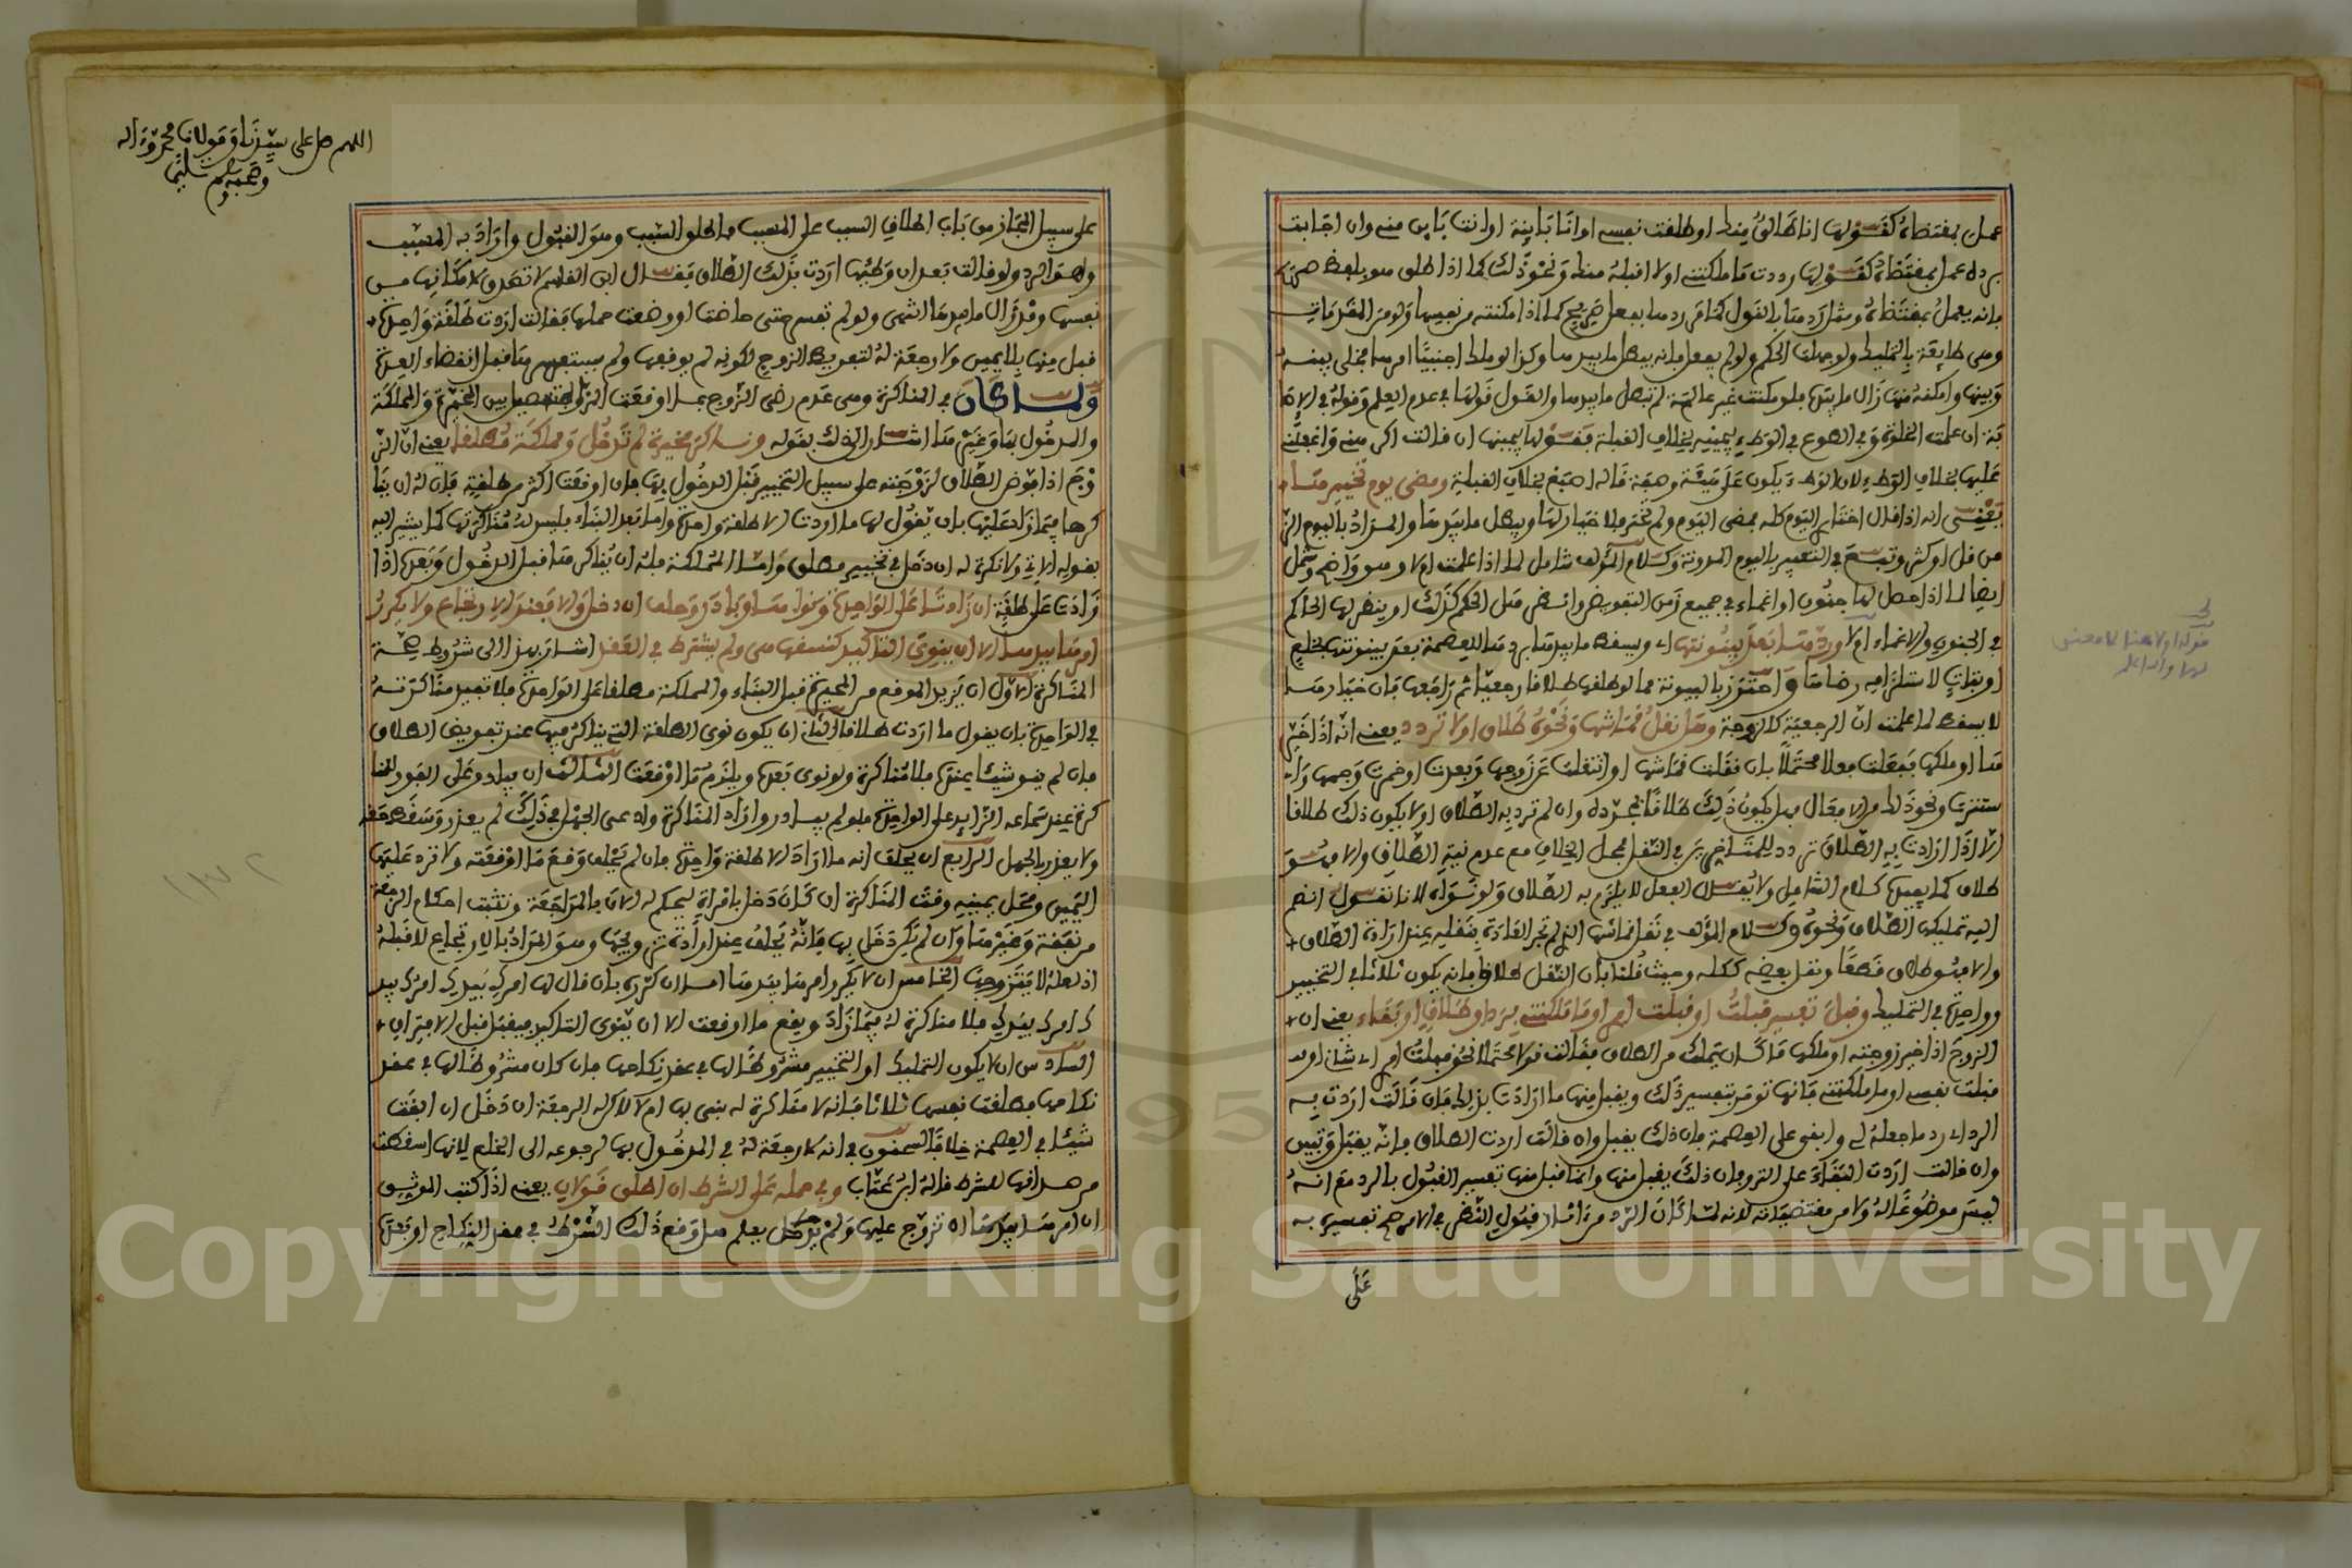 عمل بمقتضاه كقولها انا طالق منك او طلقت نفسي او انا بائنة او انت بائن مني وان اجابت
برده عمل بمقتضاه كقولها رددت ما ملكتني او لا اقبله منك ونحو ذلك كما اذا طلق هو بلفظ
فانه يعمل بمقتضاه ومثل ردها بالقول
وهي طائعة بالتمليك ولو جهلت الحكم ولو لم يفعل فانه يبطل ما بيدها وكذا لو ملك اجنبيا امرها فخلى بينه
وبينها وامكنه منها زال ما بيدها فلو مكنت غير عالمة لم يبطل ما بيدها والقول قولها في عدم العلم
ان علمت الخلوة وفي الطوع في الوطء بيمينه بخلاف القبلة فقولها بيمينها ان قالت اكرهني
عليها بخلاف الوطء لان الوطء يكون على هيئة وصفة قاله اصبغ بخلاف القبلة ومضى يوم تخييرها
يعني انه اذا قال اختاري اليوم كله فمضى اليوم ولم تختر فلا خيار لها ويبطل ما بيدها والمراد باليوم الزمن
من قل او كثر وتبع في التعبير باليوم المدونة وكلام المؤلف شامل لما اذا علمت ام لا وهو واضح وشمل
ايضا لما اذا حصل لها جنون او اغماء في جميع زمن التفويض وانظر هل الحكم كذلك او ينظر لها الحاكم
في الجنون والاغماء ام لا وردها بعد بينونتها اي ويسقط ما بيدها بردها للعصمة بعد بينونتها بخلع
او بتات لاستلزامه رضاها واحترز بالبينونة مما لو طلقها طلاقا رجعيا ثم راجعها فان خيارها
لا يسقط لما علمت ان الرجعية كالزوجة وهل نقل قماشها ونحوه طلاق او لا تردد يعني انه اذا خيرها
او ملكها ففعلت فعلا محتملا بان نقلت قماشها او انتقلت عن زوجها وبعدت او خمرت وجهها
ستترت ونحو ذلك من الافعال فهل يكون ذلك طلاقا بمجرده وان لم ترد به الطلاق او لا يكون ذلك طلاقا
الا اذا ارادت به الطلاق تردد للمتاخرين في النقل فمحل الخلاف مع عدم نية الطلاق والا فهو
طلاق كما يفيده كلام الشامل ولا يقال الفعل لا يلزم به الطلاق ولو نواه لانا نقول انضم
اليه تمليك الطلاق ونحوه وكلام المؤلف في نقل قماشها الذي لم تجر العادة بنقله عند ارادة الطلاق
والا فهو طلاق قطعا ونقل بعضه ككله وحيث قلنا بان النقل طلاق فانه يكون ثلاثا في التخيير
وواحدة في التمليك وقبل تفسير قبلت او قبلت امري او ما ملكتني برد او طلاق او بقاء يعني ان
الزوج اذا خير زوجته او ملكها ما كان يملك من الطلاق فقالت قولا محتملا نحو قبلت امري اي شاني او
قبلت نفسي او ما ملكتني فانها تومر بتفسير ذلك ويقبل منها ما ارادت بذلك فان قالت اردت به
الرد اي رد ما جعله لي وابقى على العصمة فان ذلك يقبل وان قالت اردت الطلاق فانه يقبل وتبين
وان قالت اردت البقاء على التروي فان ذلك يقبل منها وانما قبل منها تفسير القبول بالرد مع انه
ليس موضوعا له ولا من مقتضياته لانه لما كان الرد من اثار قبول النظر في الامر صح تفسيره به
على
اللهم صل على سيدنا ومولانا محمد وءاله
وصحبه وسلم تسليما
على سبيل المجاز من باب اطلاق السبب على المسبب فاطلق السبب وهو القبول واراد به المسبب
وهو الرد ولو قالت بعد ان وطئها اردت بذلك الطلاق فقال ابن القاسم لا تصدق لامكانها من
نفسها وقد زال ما بيدها انتهى ولو لم تفسر حتى حاضت او وضعت حملها فقالت اردت طلقة واحدة
قبل منها بلا يمين ولا رجعة له لتفريط الزوج لكونه لم يوقفها ولم يستفهمها قبل انقضاء العدة
ولما كان في المناكرة وهي عدم رضى الزوج بما اوقعت الزوجة تفصيل بين المخيرة والمملكة
والمدخول بها وغيرها اشار الى ذلك بقوله وناكر مخيرة لم تدخل ومملكة مطلقا يعني ان الز
وج اذا فوض الطلاق لزوجته على سبيل التخيير قبل الدخول بها فان اوقعت اكثر من طلقة فان له ان ينا
كرها فيما زاد عليها بان يقول لها ما اردت الا طلقة واحدة واما بعد البناء فليس له مناكرتها كما يشير اليه
بقوله الاتي ولا نكرة له ان دخل في تخيير مطلق واما المملكة فله ان يناكرها قبل الدخول وبعده اذا
زادت على طلقة ان زادتا على الواحدة ونواها وبادر وحلف ان دخل والا فعند الارتجاع ولا يكرر
امرها بيدها الا ان ينوي التاكيد كنسقها هي ولم يشترط في العقد اشار بهذا الى شروط صحة
المناكرة الاول ان يزيد الموقع من المخيرة قبل البناء والمملكة مطلقا على الواحدة فلا تفيد مناكرته
في الواحدة بان يقول ما اردت طلاقا الثاني ان يكون نوى الطلقة التي يناكر فيها عند تفويض الطلاق
فان لم ينو شيئا عندها فلا مناكرة ولو نوى بعدها ويلزم ما اوقعت الثالث ان يبادر على الفور للمنا
كرة عند سماعه الزائد على الواحدة فلو لم يبادر واراد المناكرة وادعى الجهل في ذلك لم يعذر وسقط حقه
ولا يعذر بالجهل الرابع ان يحلف انه ما اراد الا طلقة واحدة فان لم يحلف وقع ما اوقعته ولا ترد عليها
اليمين ومحل يمينه وقت المناكرة ان كان دخل بامراته ليحكم له الان بالمراجعة وتثبت احكام الرجعة
من نفقة وغيرها وان لم يكن دخل بها فانه يحلف عند ارادة تزويجها وهو المراد بالارتجاع لا قبله
اذ لعله لا يتزوجها الخامس ان لا يكرر امرها بيدها اما ان كرره بان قال لها امرك بيدك امرك بيد
ك امرك بيدك فلا مناكرة له فيما زاد ويقع ما اوقعت الا ان ينوي التاكيد فيقبل
السادس ان لا يكون التمليك او التخيير مشروطا لها في عقد نكاحها فان كان مشروطا لها في عقد
نكاحها فطلقت نفسها ثلاثا فانه لا مناكرة له بنى بها ام لا لاكن له الرجعة ان دخل ان ابقت
شيئا في العصمة خلافا لسحنون في انه لا رجعة له في المدخول بها لرجوعه الى الخلع لانها اسقطت
من صداقها للشرط قاله ابن عتاب وفي حمله على الشرط ان اطلق قولان يعني اذا كتب الوثيق
ان امرها بيدها ان تزوج عليها ولم يعلم هل وقع ذلك الشرط في عقد النكاح او بعده